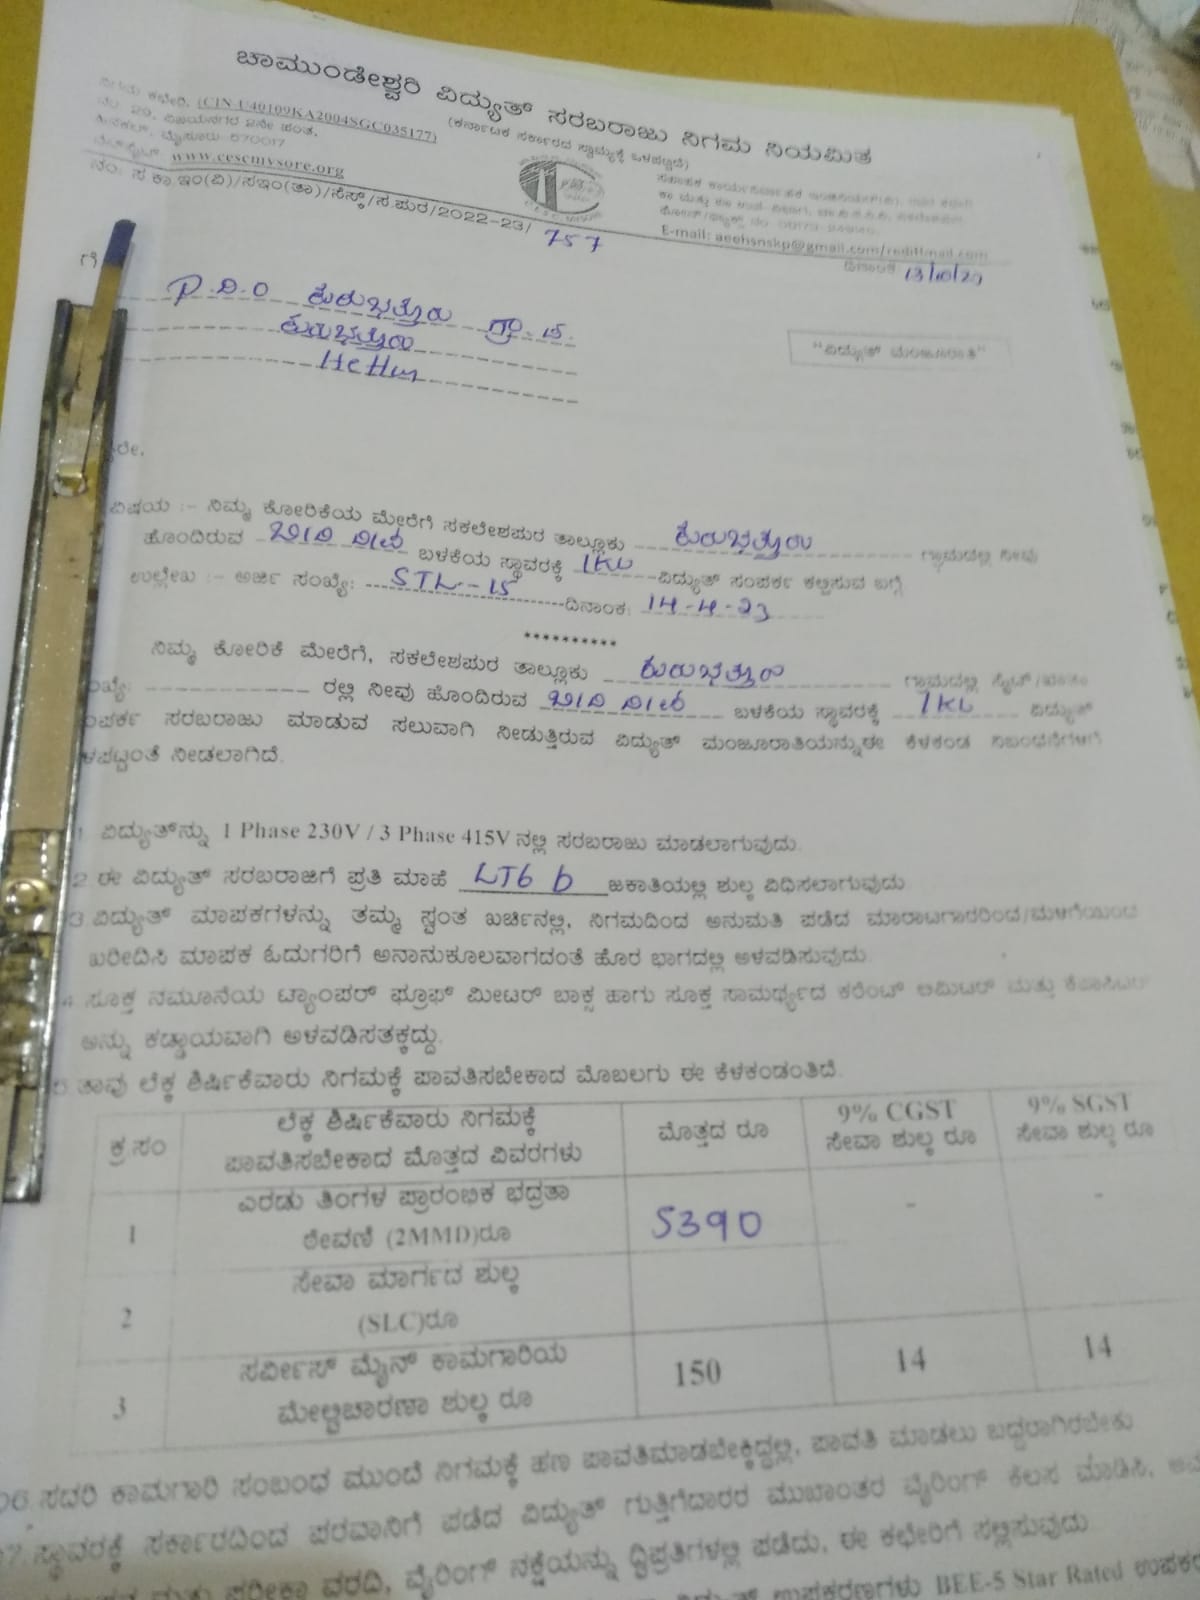 ಚಾಮುಂಡೇಶ್ವರಿ ವಿದ್ಯುತ್ ಸರಬರಾಜು ನಿಗಮ ನಿಯಮಿತ
(ಕರ್ನಾಟಕ ಸರ್ಕಾರದ ಸ್ವಾಮ್ಯಕ್ಕೆ ಒಳಪಟ್ಟಿದೆ)
ನಿಗಮ ಕಛೇರಿ, (CIN-U40109KA2004SGC035177)
ನಂ. 29, ವಿಜಯನಗರ 2ನೇ ಹಂತ,
ಹಿನಕಲ್, ಮೈಸೂರು 570017
ವೆಬ್‌ಸೈಟ್ www.cescmysore.org
E-mail: aeehsnskp@gmail.com/rediffmail.com
ನಂ. ಸ ಕಾ.ಇಂ(ವಿ)/ಸಇಂ(ತಾ)/ಸೆಸ್ಕ್/ಸ.ಪುರ/2022-23/ 757
ದಿನಾಂಕ 13/10/23
ಗೆ
P.D.O ಕುರುಭತ್ತೂರು ಗ್ರಾ.ಪಂ.
ಕುರುಭತ್ತೂರು
"ವಿದ್ಯುತ್ ಮಂಜೂರಾತಿ"
ವಿಷಯ :- ನಿಮ್ಮ ಕೋರಿಕೆಯ ಮೇರೆಗೆ ಸಕಲೇಶಪುರ ತಾಲ್ಲೂಕು ಕುರುಭತ್ತೂರು ಗ್ರಾಮದಲ್ಲಿ ನೀವು
ಹೊಂದಿರುವ ಬೀದಿ ದೀಪ ಬಳಕೆಯ ಸ್ಥಾವರಕ್ಕೆ 1KW ವಿದ್ಯುತ್ ಸಂಪರ್ಕ ಕಲ್ಪಿಸುವ ಬಗ್ಗೆ
ಉಲ್ಲೇಖ :- ಅರ್ಜಿ ಸಂಖ್ಯೆ: STL-15 ದಿನಾಂಕ: 14-4-23
**********
ನಿಮ್ಮ ಕೋರಿಕೆ ಮೇರೆಗೆ, ಸಕಲೇಶಪುರ ತಾಲ್ಲೂಕು ಕುರುಭತ್ತೂರು ಗ್ರಾಮದಲ್ಲಿ ಸೈಟ್/ಖಾತಾ
ಸಂಖ್ಯೆ: ರಲ್ಲಿ ನೀವು ಹೊಂದಿರುವ ಬೀದಿ ದೀಪ ಬಳಕೆಯ ಸ್ಥಾವರಕ್ಕೆ 1KW ವಿದ್ಯುತ್
ಸಂಪರ್ಕ ಸರಬರಾಜು ಮಾಡುವ ಸಲುವಾಗಿ ನೀಡುತ್ತಿರುವ ವಿದ್ಯುತ್ ಮಂಜೂರಾತಿಯನ್ನು ಈ ಕೆಳಕಂಡ ನಿಬಂಧನೆಗಳಿಗೆ
ಳಪಟ್ಟಂತೆ ನೀಡಲಾಗಿದೆ.
1. ವಿದ್ಯುತ್‌ನ್ನು 1 Phase 230V / 3 Phase 415V ನಲ್ಲಿ ಸರಬರಾಜು ಮಾಡಲಾಗುವುದು.
2. ಈ ವಿದ್ಯುತ್ ಸರಬರಾಜಿಗೆ ಪ್ರತಿ ಮಾಹೆ LT6 b ಜಕಾತಿಯಲ್ಲಿ ಶುಲ್ಕ ವಿಧಿಸಲಾಗುವುದು
3 ವಿದ್ಯುತ್ ಮಾಪಕಗಳನ್ನು ತಮ್ಮ ಸ್ವಂತ ಖರ್ಚಿನಲ್ಲಿ, ನಿಗಮದಿಂದ ಅನುಮತಿ ಪಡೆದ ಮಾರಾಟಗಾರರಿಂದ/ಮಳಿಗೆಯಿಂದ
ಖರೀದಿಸಿ ಮಾಪಕ ಓದುಗರಿಗೆ ಅನಾನುಕೂಲವಾಗದಂತೆ ಹೊರ ಭಾಗದಲ್ಲಿ ಅಳವಡಿಸುವುದು.
4. ಸೂಕ್ತ ನಮೂನೆಯ ಟ್ಯಾಂಪರ್ ಪ್ರೂಫ್ ಮೀಟರ್ ಬಾಕ್ಸ ಹಾಗು ಸೂಕ್ತ ಸಾಮರ್ಥ್ಯದ ಕರೆಂಟ್ ಲಿಮಿಟರ್ ಮತ್ತು ಕೆಪಾಸಿಟರ್
ಅನ್ನು ಕಡ್ಡಾಯವಾಗಿ ಅಳವಡಿಸತಕ್ಕದ್ದು.
5 ತಾವು ಲೆಕ್ಕ ಶಿರ್ಷಿಕೆವಾರು ನಿಗಮಕ್ಕೆ ಪಾವತಿಸಬೇಕಾದ ಮೊಬಲಗು ಈ ಕೆಳಕಂಡಂತಿದೆ.
ಕ್ರ.ಸಂ ಲೆಕ್ಕ ಶಿರ್ಷಿಕೆವಾರು ನಿಗಮಕ್ಕೆ ಪಾವತಿಸಬೇಕಾದ ಮೊತ್ತದ ವಿವರಗಳು ಮೊತ್ತದ ರೂ 9% CGST ಸೇವಾ ಶುಲ್ಕ ರೂ 9% SGST ಸೇವಾ ಶುಲ್ಕ ರೂ
1 ಎರಡು ತಿಂಗಳ ಪ್ರಾರಂಭಿಕ ಭದ್ರತಾ ಠೇವಣಿ (2MMD)ರೂ 5390 - -
2 ಸೇವಾ ಮಾರ್ಗದ ಶುಲ್ಕ (SLC)ರೂ
3 ಸರ್ವೀಸ್ ಮೈನ್ ಕಾಮಗಾರಿಯ ಮೇಲ್ವಿಚಾರಣಾ ಶುಲ್ಕ ರೂ 150 14 14
06. ಸದರಿ ಕಾಮಗಾರಿ ಸಂಬಂಧ ಮುಂದೆ ನಿಗಮಕ್ಕೆ ಹಣ ಪಾವತಿಮಾಡಬೇಕ್ಕಿದ್ದಲ್ಲಿ, ಪಾವತಿ ಮಾಡಲು ಬದ್ದರಾಗಿರಬೇಕು
07. ಸ್ಥಾವರಕ್ಕೆ ಸರ್ಕಾರದಿಂದ ಪರವಾನಿಗೆ ಪಡೆದ ವಿದ್ಯುತ್ ಗುತ್ತಿಗೆದಾರರ ಮುಖಾಂತರ ವೈರಿಂಗ್ ಕೆಲಸ ಮಾಡಿಸಿ,
ಮತ್ತು ಪರೀಕ್ಷಾ ವರದಿ, ವೈರಿಂಗ್ ನಕ್ಷೆಯನ್ನು ದ್ವಿಪ್ರತಿಗಳಲ್ಲಿ ಪಡೆದು, ಈ ಕಛೇರಿಗೆ ಸಲ್ಲಿಸುವುದು
ವಿದ್ಯುತ್ ಉಪಕರಣಗಳು BEE-5 Star Rated